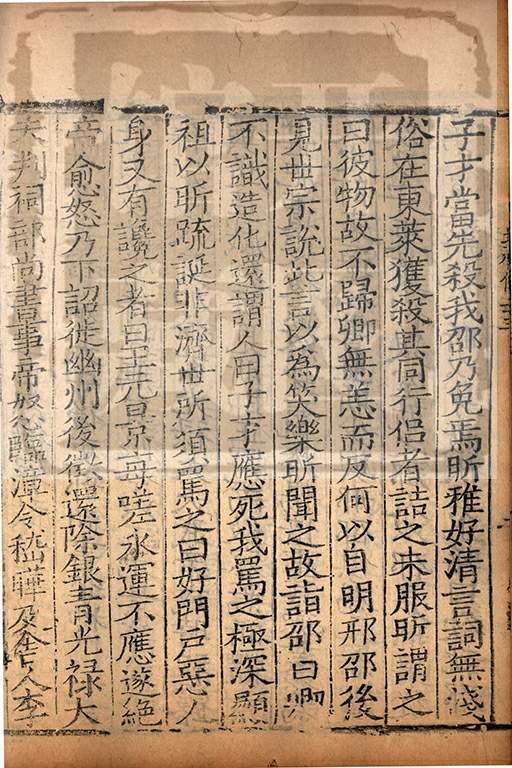 子才當先殺我邵乃免焉昕雅好清言詞無淺
俗在東萊獲殺其同行侣者詰之未服昕謂之
曰彼物故不歸卿無恙而反何以自明邢邵後
見世宗說此言以為笑樂昕聞之故詣邵曰卿
不識造化還謂人曰子才應死我罵之極深顯
祖以昕疏誕非濟世所須罵之曰好門戶惡人
身又有讒之者曰王元景每嗟水運不應遂絶
帝愈怒乃下詔徙幽州後徵還除銀青光禄大
夫判祠部尚書事帝怒臨漳令嵇曄及舍人李